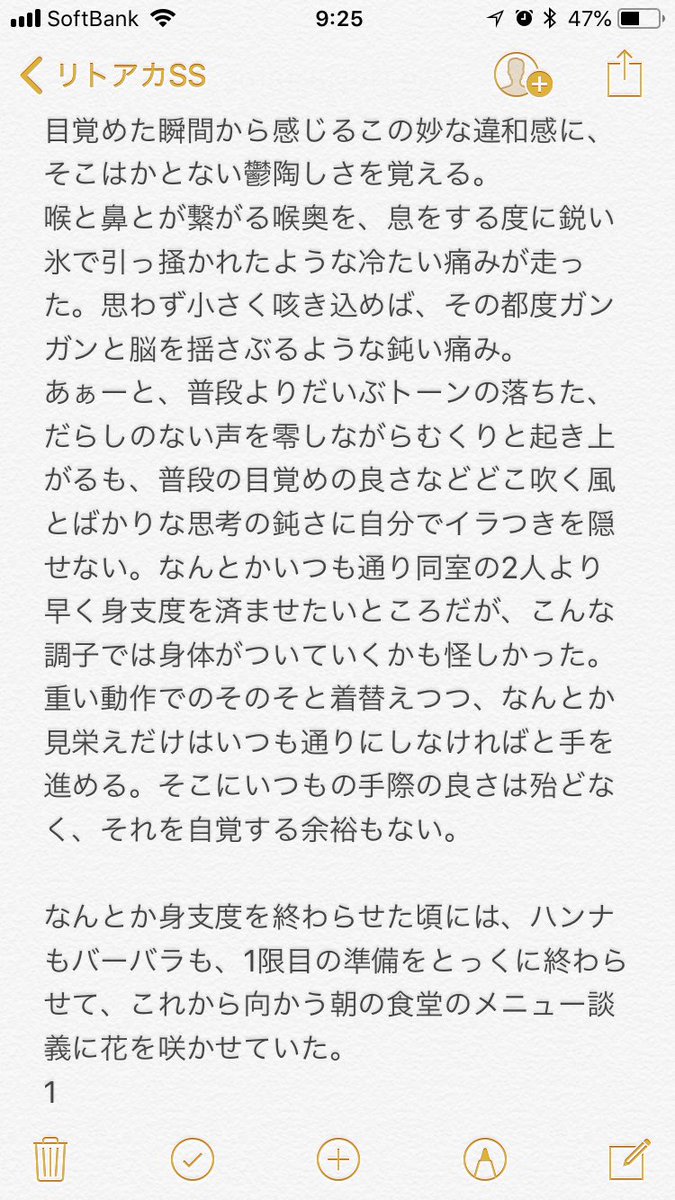 SoftBank 9:25 47%
リトアカSS
目覚めた瞬間から感じるこの妙な違和感に、
そこはかとない鬱陶しさを覚える。
喉と鼻とが繋がる喉奥を、息をする度に鋭い
氷で引っ掻かれたような冷たい痛みが走っ
た。思わず小さく咳き込めば、その都度ガン
ガンと脳を揺さぶるような鈍い痛み。
あぁーと、普段よりだいぶトーンの落ちた、
だらしのない声を零しながらむくりと起き上
がるも、普段の目覚めの良さなどどこ吹く風
とばかりな思考の鈍さに自分でイラつきを隠
せない。なんとかいつも通り同室の2人より
早く身支度を済ませたいところだが、こんな
調子では身体がついていくかも怪しかった。
重い動作でのそのそと着替えつつ、なんとか
見栄えだけはいつも通りにしなければと手を
進める。そこにいつもの手際の良さは殆どな
く、それを自覚する余裕もない。
なんとか身支度を終わらせた頃には、ハンナ
もバーバラも、1限目の準備をとっくに終わら
せて、これから向かう朝の食堂のメニュー談
義に花を咲かせていた。
1